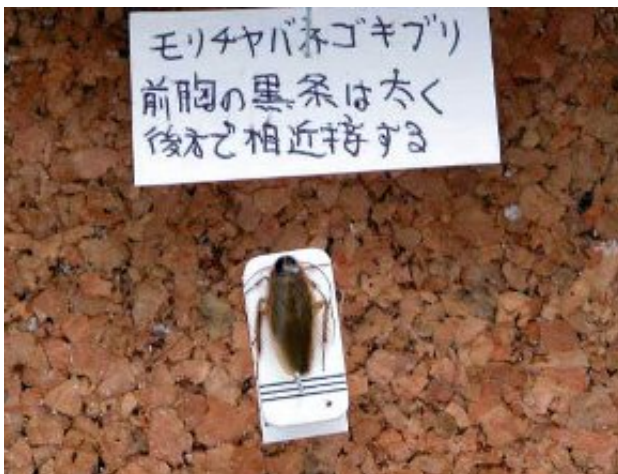 モリチャバネゴキブリ
前胸の黒条は太く
後方で相近接する